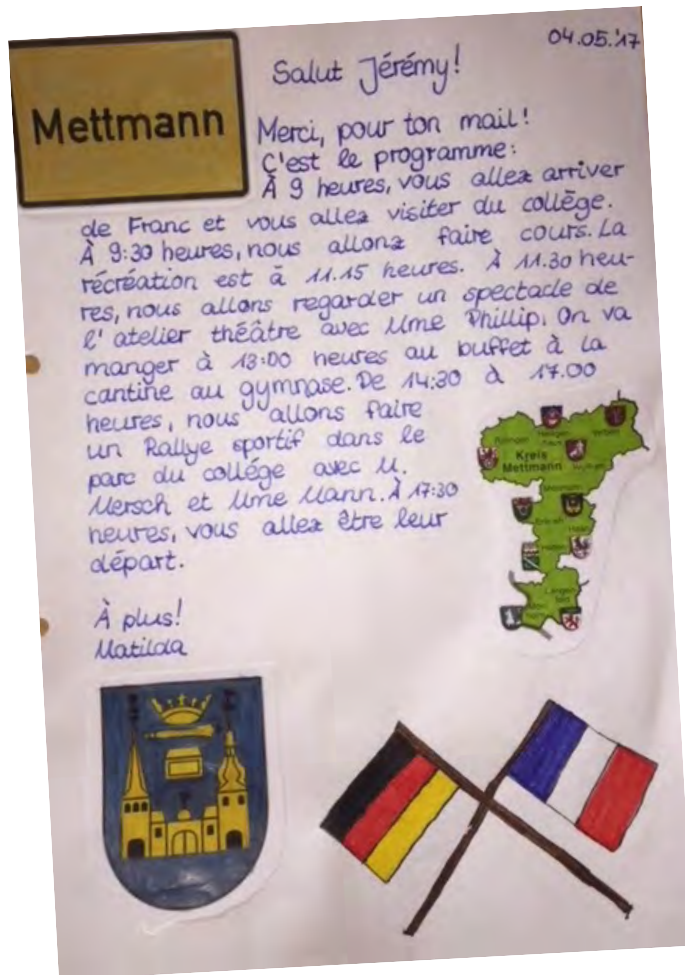 04.05.'17
Salut Jérémy!
Mettmann
Merci, pour ton mail!
C'est le programme:
À 9 heures, vous allez arriver
de Franc et vous allez visiter du collège.
À 9:30 heures, nous allonz faire cours. La
récréation est à 11.15 heures. À 11.30 heu-
res, nous allons regarder un spectacle de
l'atelier théâtre avec Mme Phillip. On va
manger à 13:00 heures au buffet à la
cantine au gymnase. De 14:30 à 17.00
heures, nous allons faire
un Rallye sportif dans le
parc du collége avec M.
Mersch et Mme Mann. À 17:30
heures, vous allez être leur
départ.
Kreis
Mettmann
À plus!
Matilda